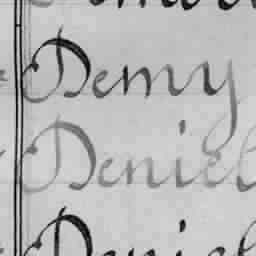 Demy
Deniel
Deniel